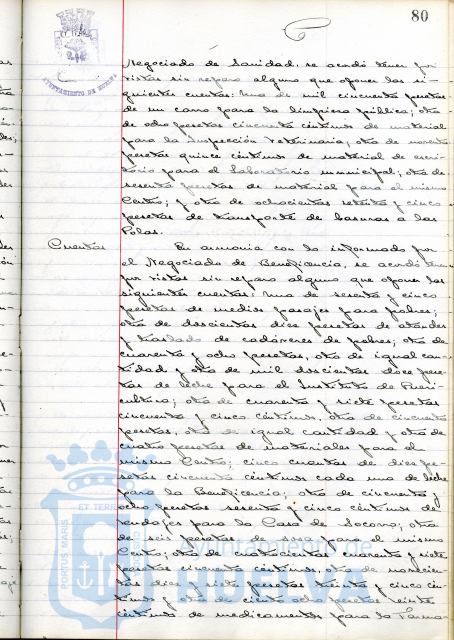 80
AYUNTAMIENTO DE HUELVA
Negociado de Sanidad, se acordó tener por
vistas sin reparo alguno que oponer las si-
guientes cuentas: Una de mil cincuenta pesetas
de un carro para la limpieza pública; otra
de ocho pesetas cincuenta céntimos de material
para la Inspección Veterinaria; otra de noventa
pesetas quince céntimos de material de escri-
torio para el Laboratorio municipal; otra de
sesenta pesetas de material para el mismo
Centro; y otra de ochocientas setenta y cinco
pesetas de transporte de basuras a las
Polas.
Cuentas
En armonía con lo informado por
el Negociado de Beneficencia, se acordó tener
por vistas sin reparo alguno que oponer las
siguientes cuentas: Una de sesenta y cinco
pesetas de medios pasajes para pobres;
otra de doscientas diez pesetas de ataudes
y traslado de cadáveres de pobres; otra de
cuarenta y ocho pesetas, otra de igual can-
tidad y otra de mil doscientas doce pese-
tas de leche para el Instituto de Pueri-
cultura; otra de cuarenta y siete pesetas
cincuenta y cinco céntimos, otra de cincuenta
pesetas, otra de igual cantidad y otra de
cuatro pesetas de materiales para el
mismo Centro; cinco cuentas de diez pe-
setas cincuenta céntimos cada una de leche
para la Beneficencia; otra de cincuenta y
ocho pesetas sesenta y cinco céntimos de
vendajes para la Casa de Socorro; otra
de seis pesetas de para el mismo
Centro; otra de cuarenta y siete
pesetas cincuenta céntimos, otra de novecien-
tas diez y siete pesetas treinta y cinco cén-
timos y otra de ciento ocho pesetas veinte
céntimos de medicamentos para la Farma-
ET TERRA
PORTUS MARIS
Ayuntamiento de
HUELVA